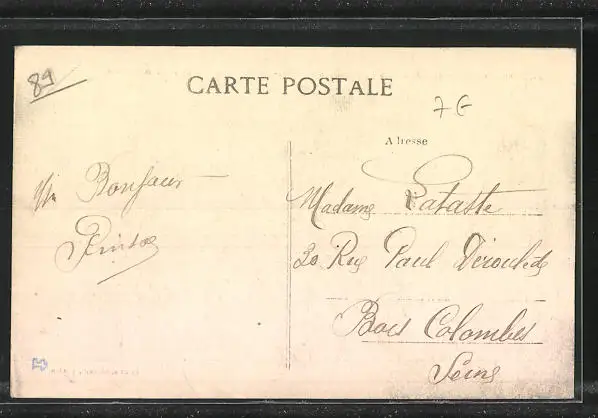 89
CARTE POSTALE
7 €
Adresse
Un Bonjour
Madame Lataste
30 Rue Paul Déroulède
Bois Colombes
Seine